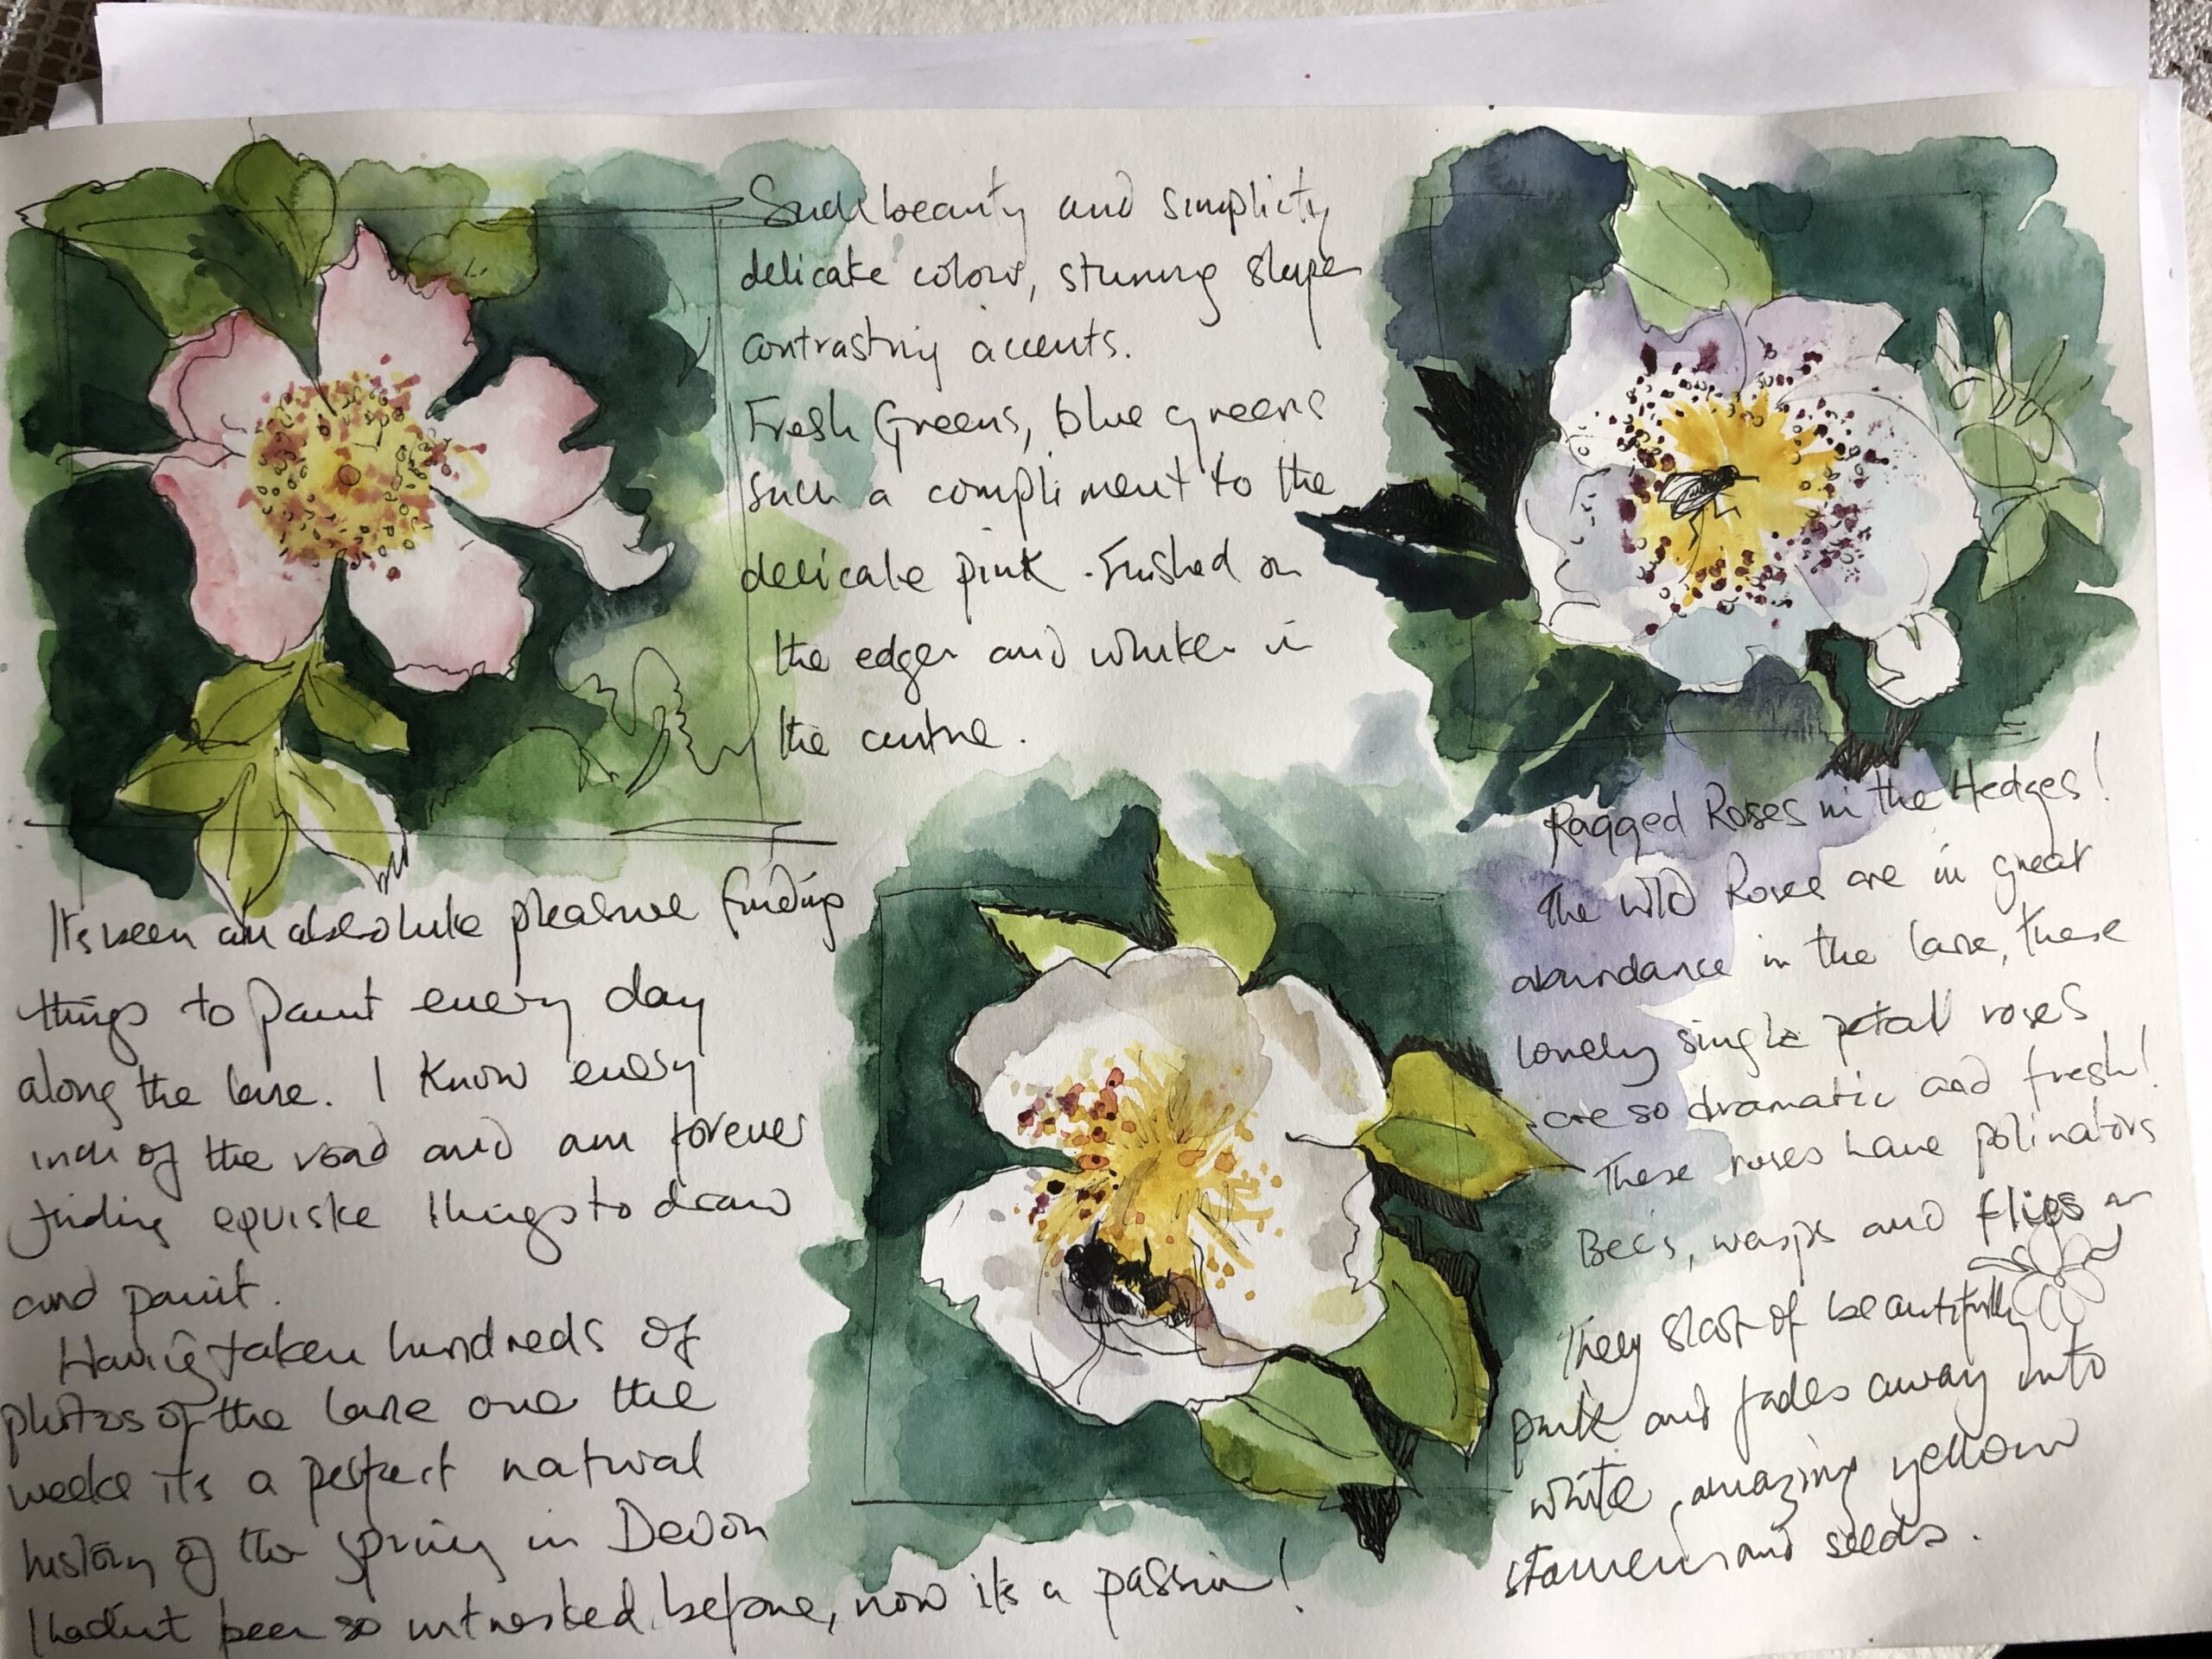 Such beauty and simplicity
delicate colour, stuning shape
contrasting accents.
Fresh Greens, blue greens
such a compliment to the
delicate pink.
the edges and whiter in
the centre.
Its been an absolute pleasure finding
things to paint every day
along the lane. I know every
inch of the road and am forever
finding equiste things to draw
and paint.
Having taken hundreds of
photos of the lane over the
weeks its a perfect natural
history of the spring in Devon
I hadn't been so intrested before, now its a passion!
Ragged Roses in the Hedges!
The wild Roses are in great
abundance in the lane, these
lovely single petal roses
are so dramatic and fresh!
These roses have polinators
Bees, wasps and flies
They start of beautifully
pink and fades away into
white, amazing yellow
stamens and seeds.